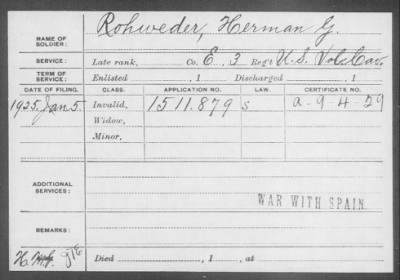 NAME OF SOLDIER: Rohweder, Herman G.
SERVICE: Late rank, Co. E. 3 Reg't U.S. Vol. Cav.
TERM OF SERVICE: Enlisted , 1 Discharged , 1
DATE OF FILING. CLASS. APPLICATION NO. LAW. CERTIFICATE NO.
1925. Jan 5. Invalid, 1511.879 S a-9 4-29
Widow,
Minor,
ADDITIONAL SERVICES:
WAR WITH SPAIN
REMARKS:
Died , 1 , at